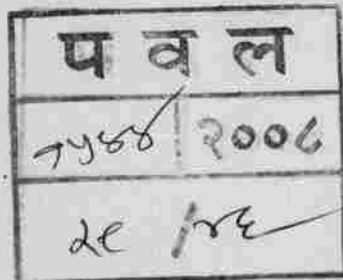 प व ल
१५४४ २००८
२९ / ४६